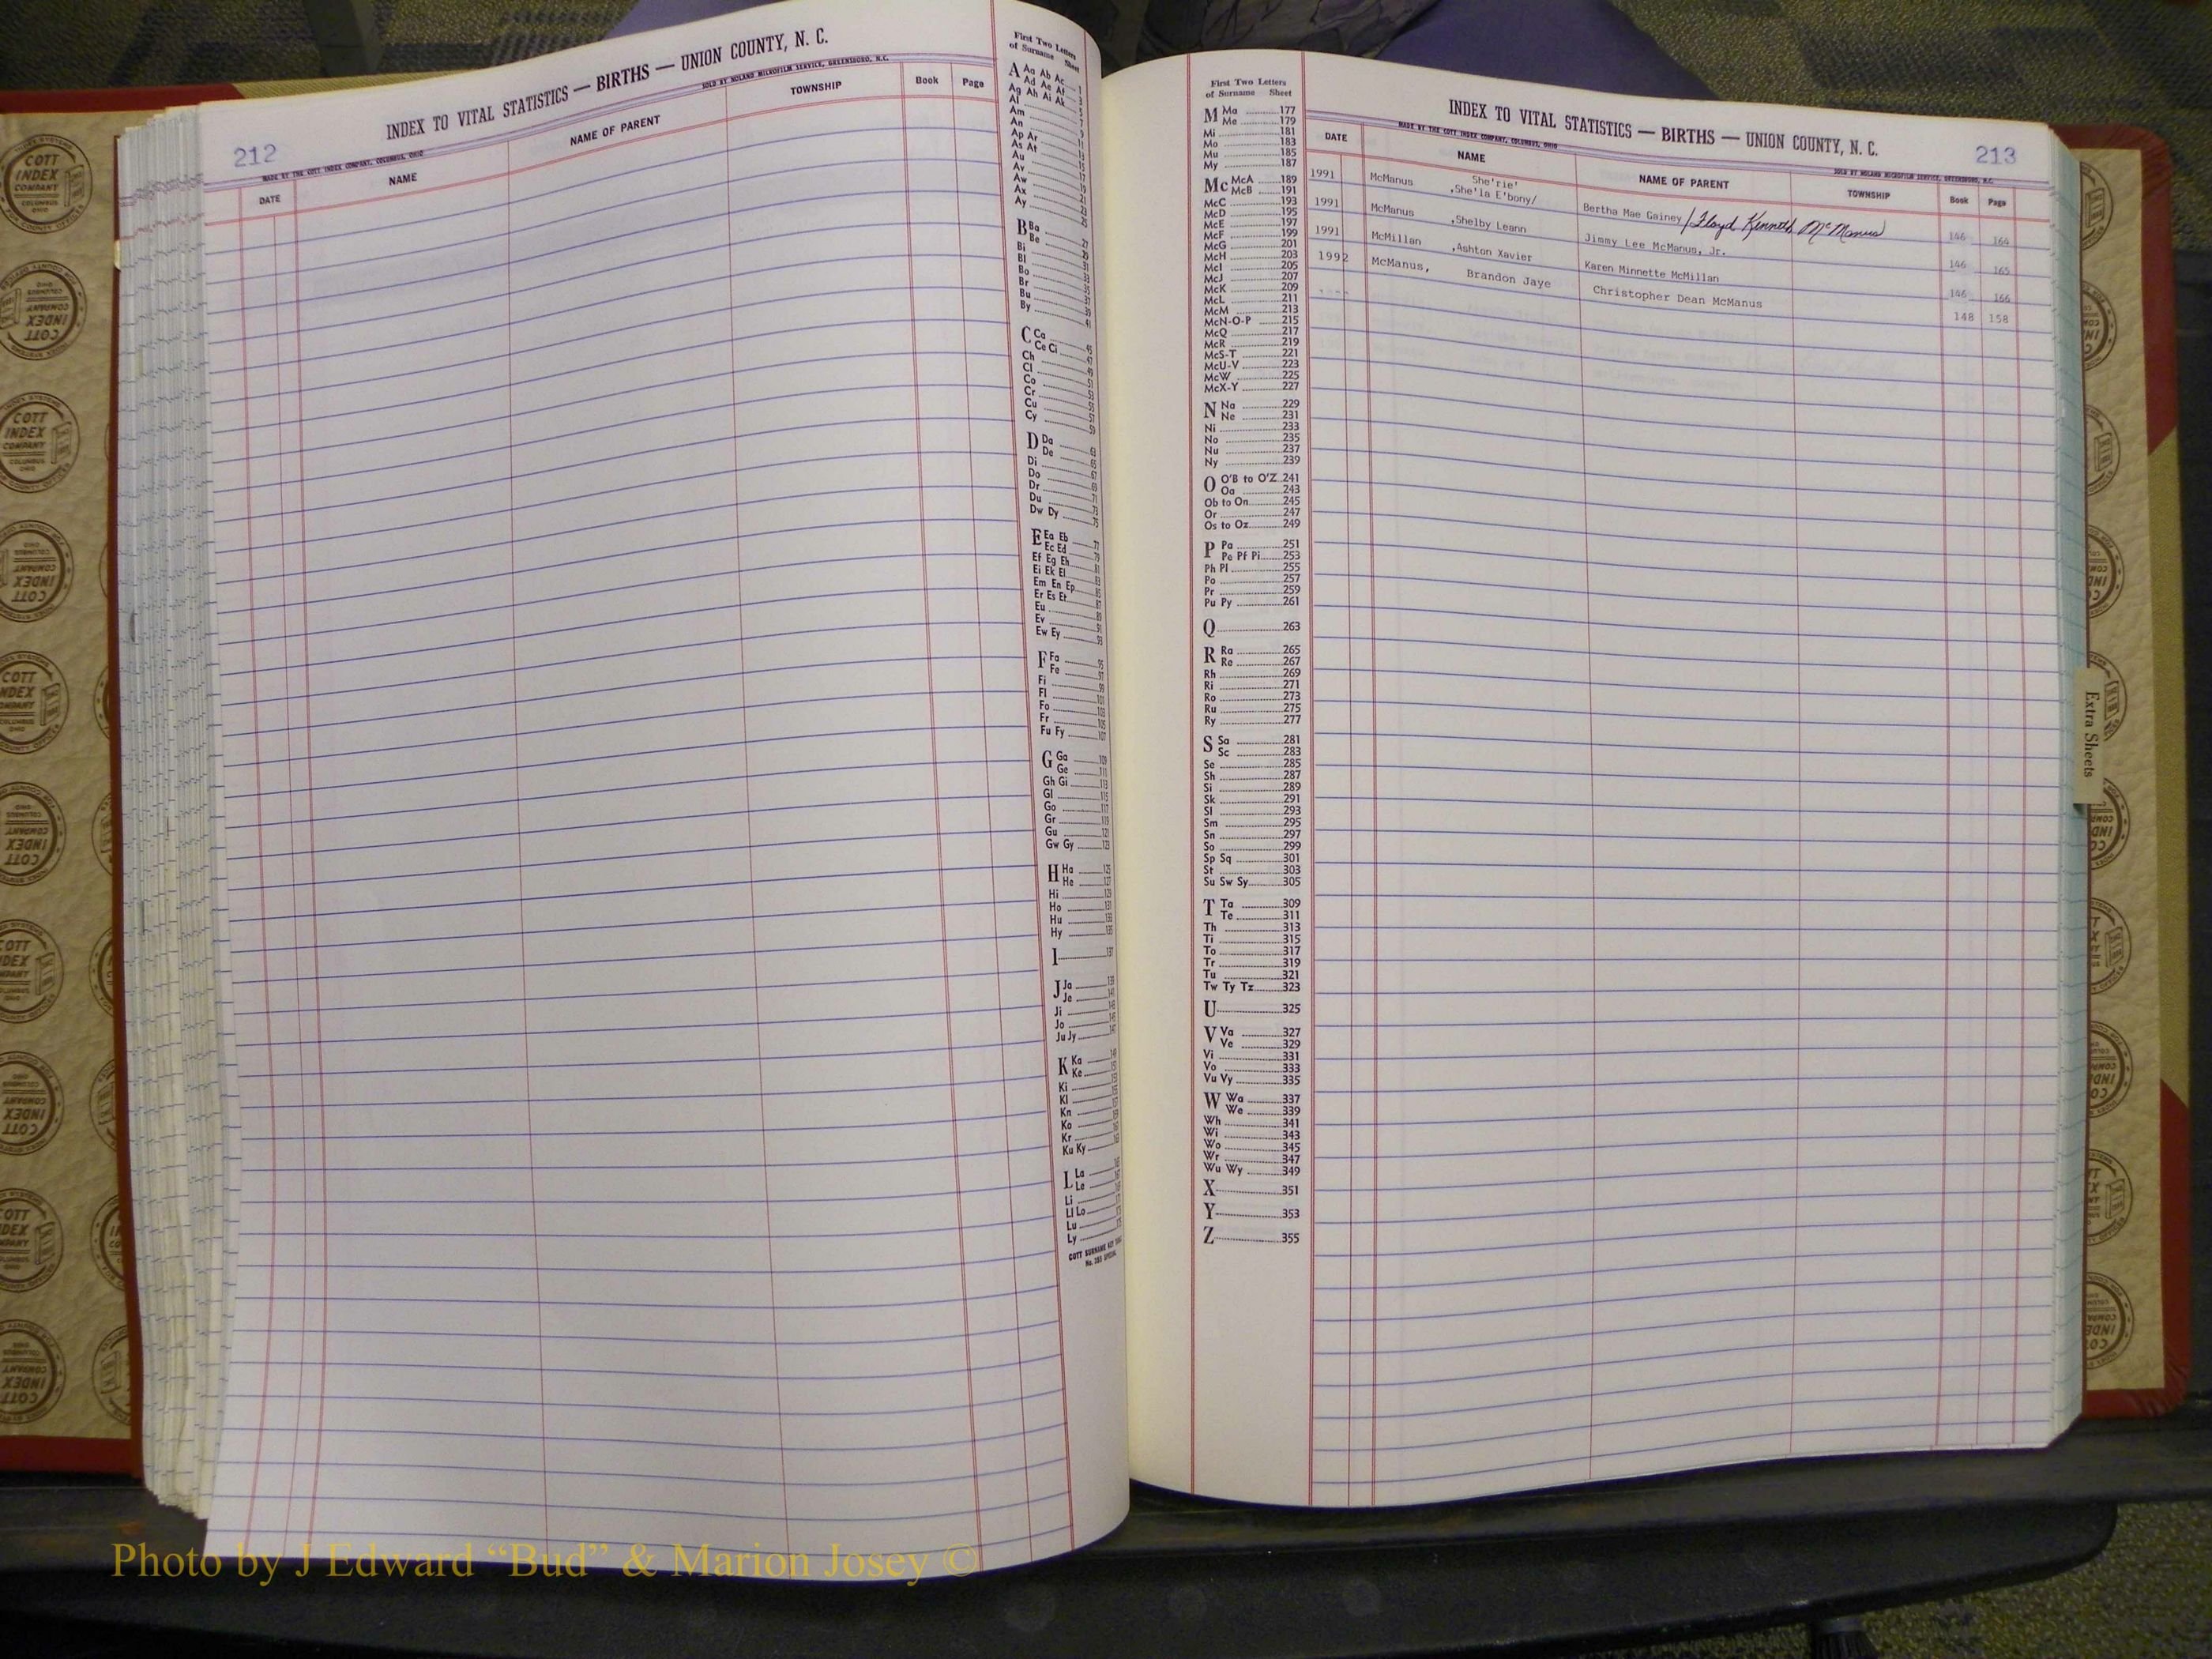 212
INDEX TO VITAL STATISTICS — BIRTHS — UNION COUNTY, N. C.
MADE BY THE COTT INDEX COMPANY, COLUMBUS, OHIO
SOLD BY NOLAND MICROFILM SERVICE, GREENSBORO, N.C.
DATE NAME NAME OF PARENT TOWNSHIP Book Page
First Two Letters
of Surname Sheet
A Aa Ab Ac 1
Ad Ae Af 3
Ag Ah Ai Ak 5
Al 7
Am 9
An 11
Ap Ar
As At
Au
Av
Aw
Ax
Ay
B Ba
Be
Bi
Bl
Bo
Br
Bu
By
C Ca
Ce Ci
Ch
Cl
Co
Cr
Cu
Cy
D Da
De
Di
Do
Dr
Du
Dw Dy
E Ea Eb
Ec Ed
Ef Eg Eh
Ei Ek El
Em En Ep
Er Es Et
Eu
Ev
Ew Ey
F Fa
Fe
Fi
Fl
Fo
Fr
Fu Fy
G Ga
Ge
Gh Gi
Gl
Go
Gr
Gu
Gw Gy
H Ha
He
Hi
Ho
Hu
Hy
I
J Ja
Je
Ji
Jo
Ju Jy
K Ka
Ke
Ki
Kl
Kn
Ko
Kr
Ku Ky
L La
Le
Li
Ll Lo
Lu
Ly
COTT SURNAME KEY
First Two Letters
of Surname Sheet
M Ma 177
Me 179
Mi 181
Mo 183
Mu 185
My 187
Mc McA 189
McB 191
McC 193
McD 195
McE 197
McF 199
McG 201
McH 203
McI 205
McJ 207
McK 209
McL 211
McM 213
McN-O-P 215
McQ 217
McR 219
McS-T 221
McU-V 223
McW 225
McX-Y 227
N Na 229
Ne 231
Ni 233
No 235
Nu 237
Ny 239
O O'B to O'Z 241
Oa 243
Ob to On 245
Or 247
Os to Oz 249
P Pa 251
Pe Pf Pi 253
Ph Pl 255
Po 257
Pr 259
Pu Py 261
Q 263
R Ra 265
Re 267
Rh 269
Ri 271
Ro 273
Ru 275
Ry 277
S Sa 281
Sc 283
Se 285
Sh 287
Si 289
Sk 291
Sl 293
Sm 295
Sn 297
So 299
Sp Sq 301
St 303
Su Sw Sy 305
T Ta 309
Te 311
Th 313
Ti 315
To 317
Tr 319
Tu 321
Tw Ty Tz 323
U 325
V Va 327
Ve 329
Vi 331
Vo 333
Vu Vy 335
W Wa 337
We 339
Wh 341
Wi 343
Wo 345
Wr 347
Wu Wy 349
X 351
Y 353
Z 355
INDEX TO VITAL STATISTICS — BIRTHS — UNION COUNTY, N. C.
213
MADE BY THE COTT INDEX COMPANY, COLUMBUS, OHIO
SOLD BY NOLAND MICROFILM SERVICE, GREENSBORO, N.C.
DATE NAME NAME OF PARENT TOWNSHIP Book Page
She'rie'
1991 McManus ,She'la E'bony/ Bertha Mae Gainey / Floyd Kenneth McManus 146 164
1991 McManus ,Shelby Leann Jimmy Lee McManus, Jr. 146 165
1991 McMillan ,Ashton Xavier Karen Minnette McMillan 146 166
1992 McManus, Brandon Jaye Christopher Dean McManus 148 158
Extra Sheets
COTT
INDEX
COMPANY
COLUMBUS
OHIO
Photo by J Edward “Bud” & Marion Josey ©